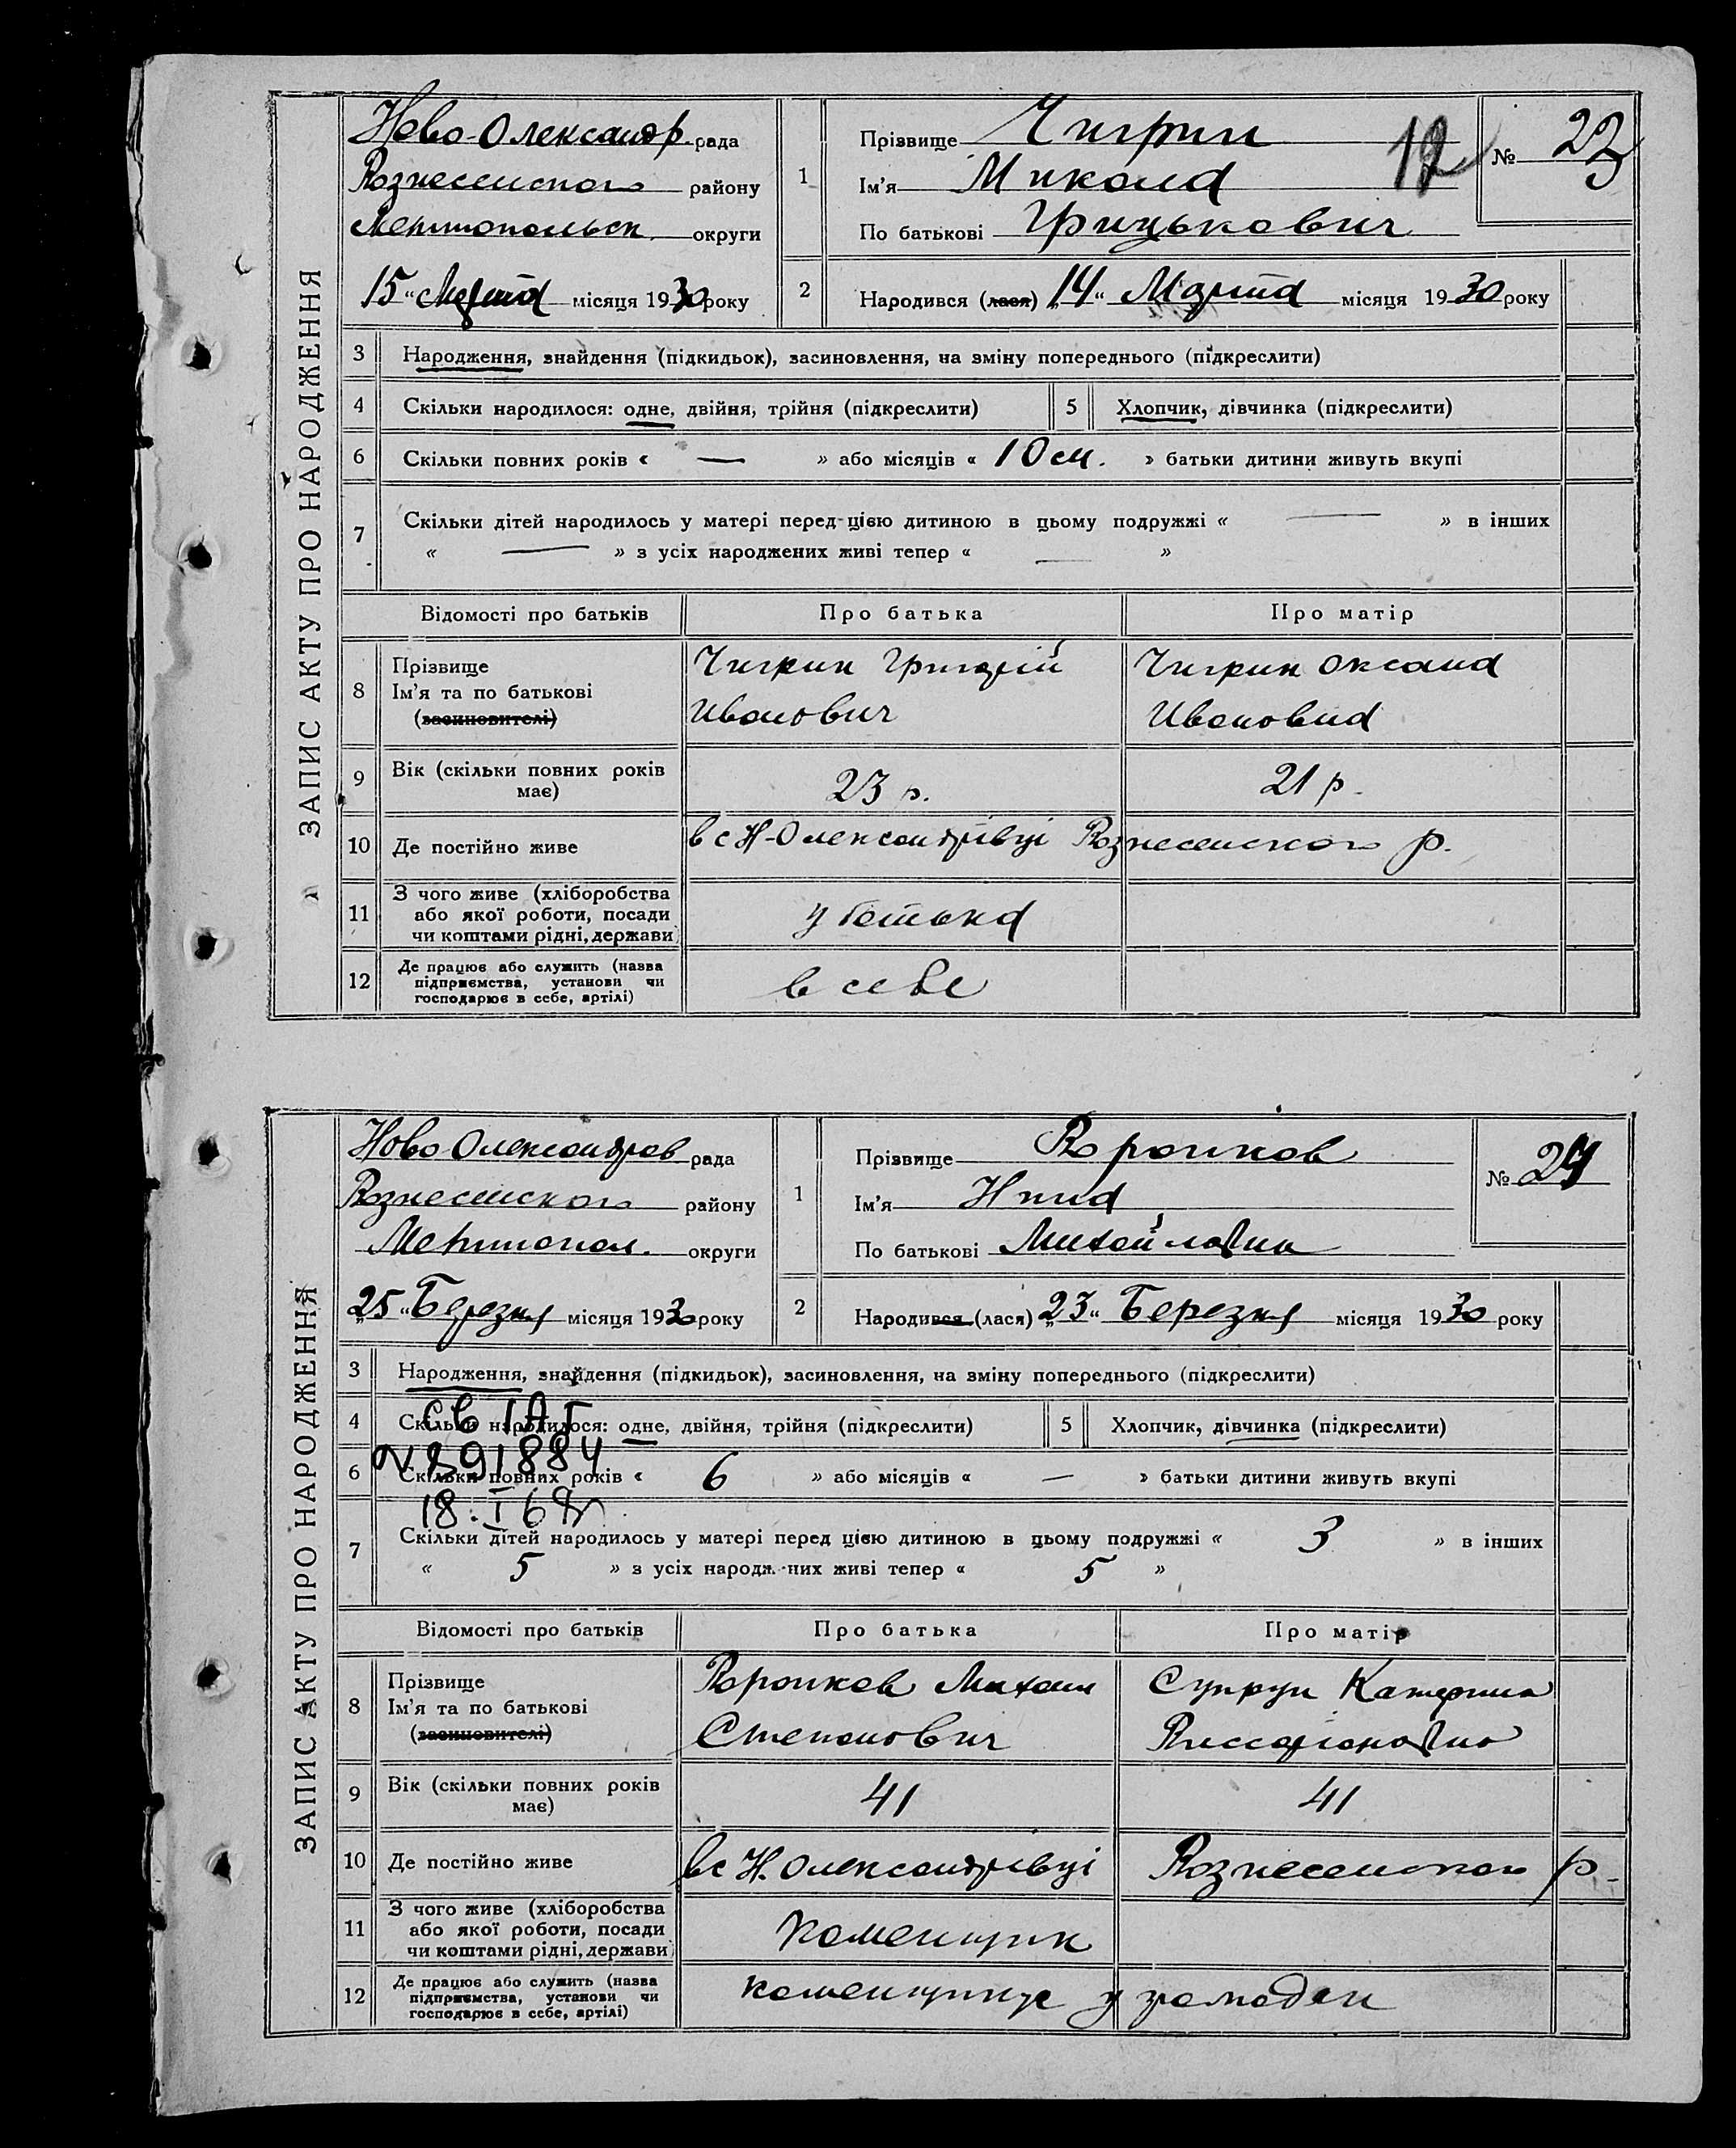 ЗАПИС АКТУ ПРО НАРОДЖЕННЯ
Ново-Олександр. рада
Вознесенского району
Мелитопольск. округи
15 "Марта місяця 1930 року
1 Прізвище Чигрин
Ім'я Микола
По батькові Грицькович
12
№ 23
2 Народився (лася) „14" Марта місяця 1930 року
3 Народження, знайдення (підкидьок), засиновлення, на зміну попереднього (підкреслити)
4 Скільки народилося: одне, двійня, трійня (підкреслити) 5 Хлопчик, дівчинка (підкреслити)
6 Скільки повних років « — » або місяців « 10 м. » батьки дитини живуть вкупі
7 Скільки дітей народилось у матері перед цією дитиною в цьому подружжі « — » в інших
« — » з усіх народжених живі тепер « — »
Відомості про батьків Про батька Про матір
8 Прізвище Чигрин Григорій Чигрин Оксана
Ім'я та по батькові Ивонович Ивоновна
(засиновителі)
9 Вік (скільки повних років 23 р. 21 р.
має)
10 Де постійно живе в с Н-Олександрівці Вознесенского р.
11 З чого живе (хліборобства
або якої роботи, посади у батька
чи коштами рідні, держави)
12 Де працює або служить (назва
підприємства, установи чи в себе
господарює в себе, артілі)
ЗАПИС АКТУ ПРО НАРОДЖЕННЯ
Ново-Олександров рада
Вознесенского району
Мелитопол. округи
„25" Березня місяця 1930 року
1 Прізвище Воронков
Ім'я Нина
По батькові Михайловна
№ 24
2 Народився (лася) „23" Березня місяця 1930 року
3 Народження, знайдення (підкидьок), засиновлення, на зміну попереднього (підкреслити)
4 Скільки народилося: одне, двійня, трійня (підкреслити) 5 Хлопчик, дівчинка (підкреслити)
№ 891884
6 Скільки повних років « 6 » або місяців « — » батьки дитини живуть вкупі
7 Скільки дітей народилось у матері перед цією дитиною в цьому подружжі « 3 » в інших
« 5 » з усіх народжених живі тепер « 5 »
Відомості про батьків Про батька Про матір
8 Прізвище Воронков Михаил Супрун Катерина
Ім'я та по батькові Степонович Виссаріоновна
(засиновителі)
9 Вік (скільки повних років 41 41
має)
10 Де постійно живе в с Н. Олександрівці Вознесенского р.
11 З чого живе (хліборобства
або якої роботи, посади каменщик
чи коштами рідні, держави)
12 Де працює або служить (назва
підприємства, установи чи каменщикує у громодян
господарює в себе, артілі)